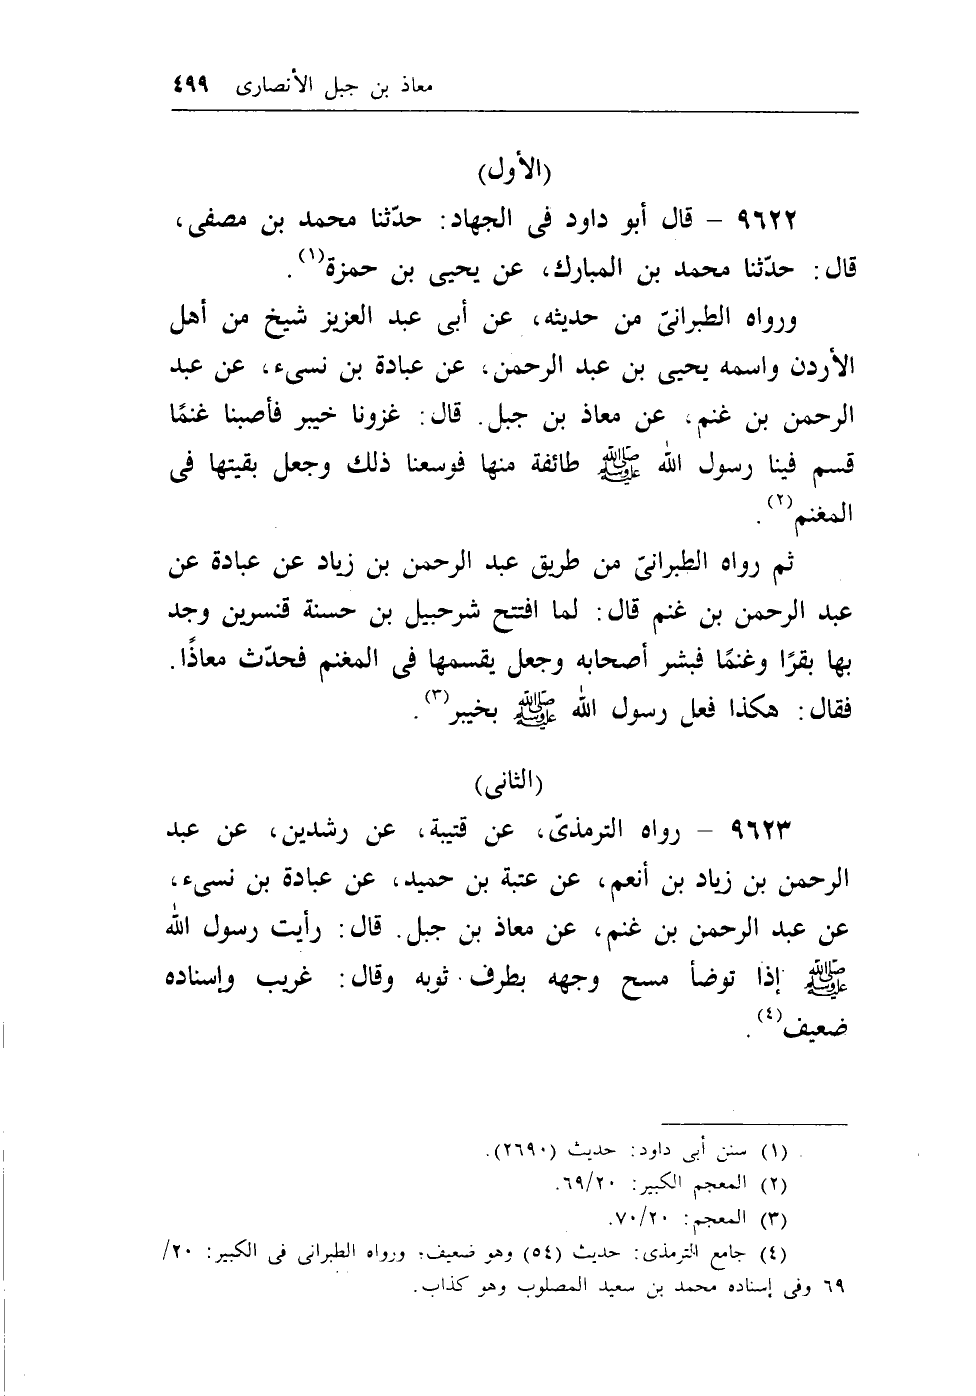 معاذ بن جبل الأنصارى ٤٩٩
(الأول)
٩٦٢٢ – قال أبو داود فى الجهاد: حدّثنا محمد بن مصفى،
قال: حدّثنا محمد بن المبارك، عن يحيى بن حمزة(١).
ورواه الطبرانىّ من حديثه، عن أبى عبد العزيز شيخ من أهل
الأردن واسمه يحيى بن عبد الرحمن، عن عبادة بن نسىء، عن عبد
الرحمن بن غنم، عن معاذ بن جبل. قال: غزونا خيبر فأصبنا غنمًا
قسم فينا رسول الله ﷺ طائفة منها فوسعنا ذلك وجعل بقيتها فى
المغنم(٢).
ثم رواه الطبرانىّ من طريق عبد الرحمن بن زياد عن عبادة عن
عبد الرحمن بن غنم قال: لما افتتح شرحبيل بن حسنة قنسرين وجد
بها بقرًا وغنمًا فبشر أصحابه وجعل يقسمها فى المغنم فحدّث معاذًا.
فقال: هكذا فعل رسول الله ﷺ بخيبر(٣).
(الثانى)
٩٦٢٣ – رواه الترمذىّ، عن قتيبة، عن رشدين، عن عبد
الرحمن بن زياد بن أنعم، عن عتبة بن حميد، عن عبادة بن نسىء،
عن عبد الرحمن بن غنم، عن معاذ بن جبل. قال: رأيت رسول الله
ﷺ إذا توضأ مسح وجهه بطرف ثوبه وقال: غريب وإسناده
ضعيف(٤).
(١) سنن أبى داود: حديث (٢٦٩٠).
(٢) المعجم الكبير: ٦٩/٢٠.
(٣) المعجم: ٧٠/٢٠.
(٤) جامع الترمذى: حديث (٥٤) وهو ضعيف؛ ورواه الطبرانى فى الكبير: ٢٠/
٦٩ وفى إسناده محمد بن سعيد المصلوب وهو كذاب.